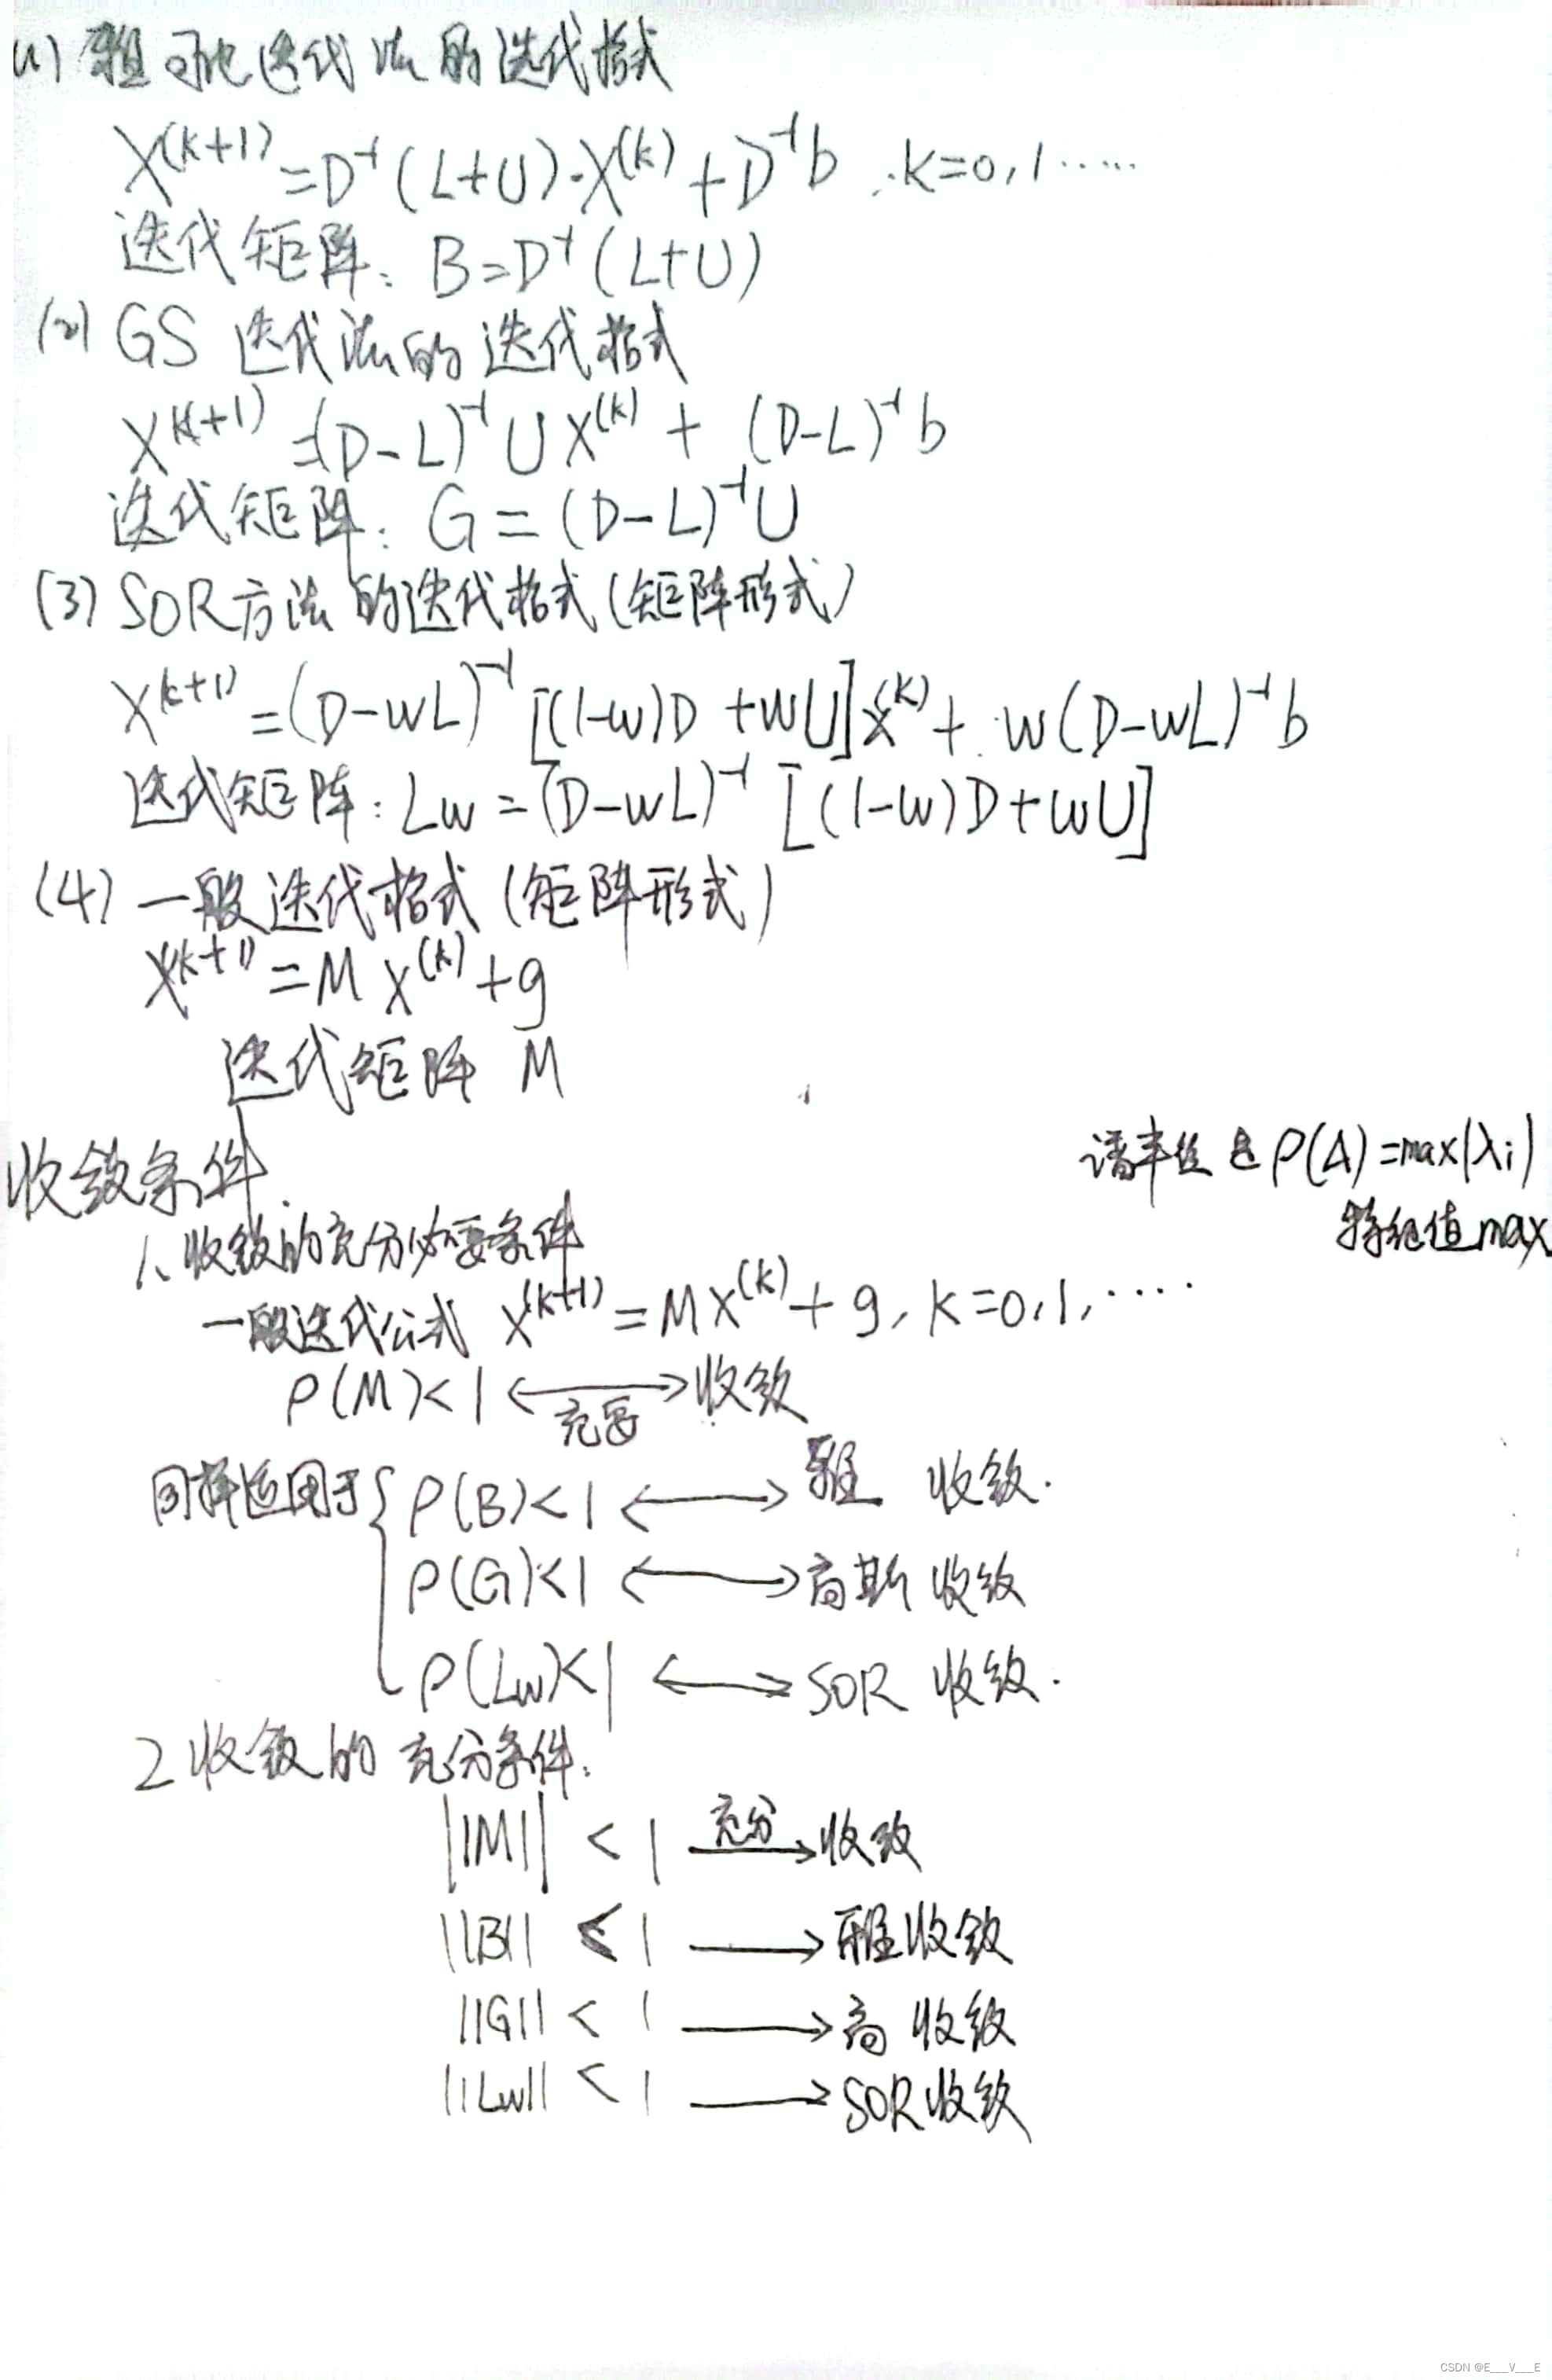 (1) 雅可比迭代法的迭代格式
X^(k+1) = D^-1 (L+U)·X^(k) + D^-1 b , k=0,1……
迭代矩阵: B=D^-1 (L+U)
(2) GS 迭代法的迭代格式
X^(k+1) = (D-L)^-1 U X^(k) + (D-L)^-1 b
迭代矩阵: G = (D-L)^-1 U
(3) SOR方法的迭代格式(矩阵形式)
X^(k+1) = (D-wL)^-1 [(1-w)D+wU] X^(k) + w(D-wL)^-1 b
迭代矩阵: Lw = (D-wL)^-1 [(1-w)D+wU]
(4) 一般迭代格式(矩阵形式)
X^(k+1) = M X^(k) + g
迭代矩阵 M
收敛条件
谱半径是 ρ(A)=max|λi|
特征值max
1、收敛的充分必要条件
一般迭代公式 X^(k+1) = MX^(k) + g, k=0,1,……
ρ(M)<1 ⟷ 收敛
充要
同样适用于 { ρ(B)<1 ⟷ 雅 收敛.
ρ(G)<1 ⟷ 高斯 收敛
ρ(Lw)<1 ⟷ SOR 收敛.
2 收敛的充分条件:
||M|| < 1 充分→ 收敛
||B|| < 1 → 雅收敛
||G|| < 1 → 高 收敛
||Lw|| < 1 → SOR收敛
CSDN @E__V__E